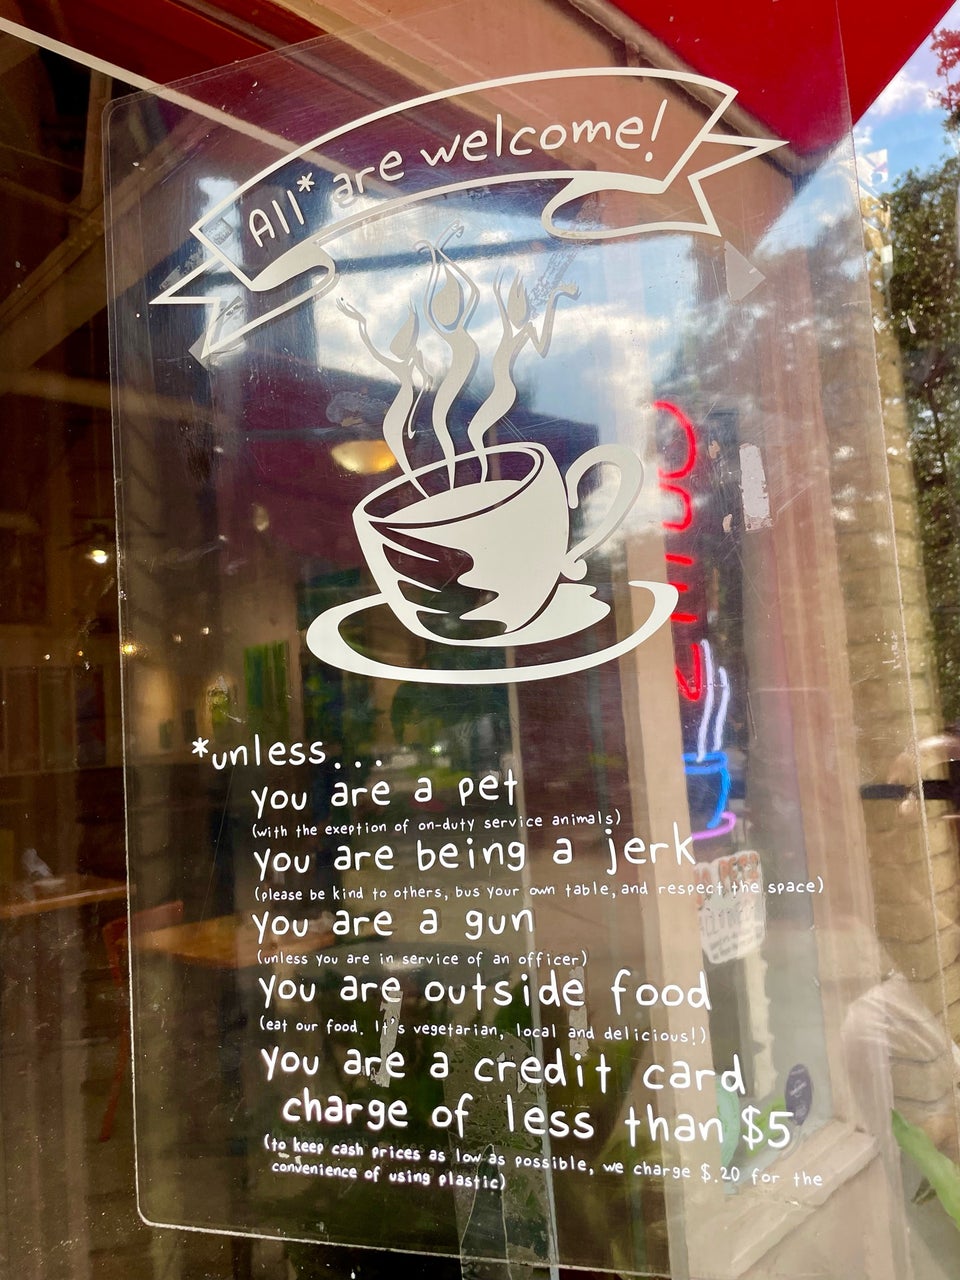 All* are welcome!
*unless...
you are a pet
(with the exeption of on-duty service animals)
you are being a jerk
(please be kind to others, bus your own table, and respect the space)
you are a gun
(unless you are in service of an officer)
you are outside food
(eat our food. It's vegetarian, local and delicious!)
you are a credit card
charge of less than $5
(to keep cash prices as low as possible, we charge $.20 for the
convenience of using plastic)